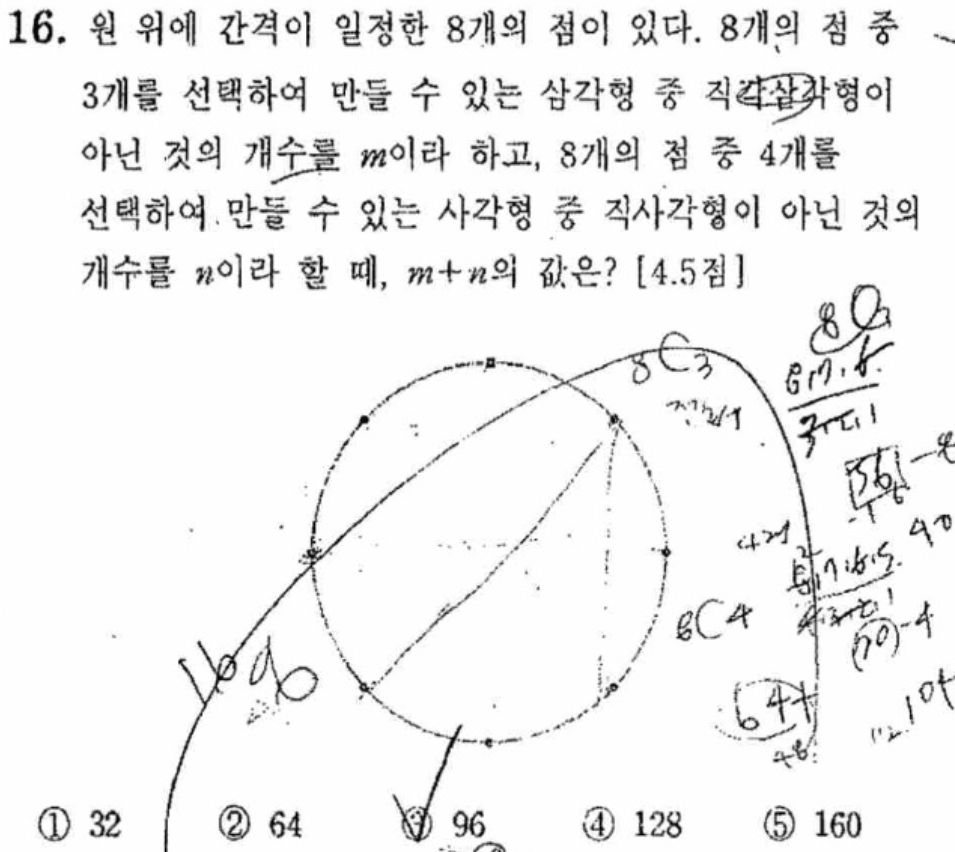 16. 원 위에 간격이 일정한 8개의 점이 있다. 8개의 점 중
3개를 선택하여 만들 수 있는 삼각형 중 직각삼각형이
아닌 것의 개수를 m이라 하고, 8개의 점 중 4개를
선택하여 만들 수 있는 사각형 중 직사각형이 아닌 것의
개수를 n이라 할 때, m+n의 값은? [4.5점]
8C3
56
40
8C4
70-4
64+
① 32 ② 64 ③ 96 ④ 128 ⑤ 160